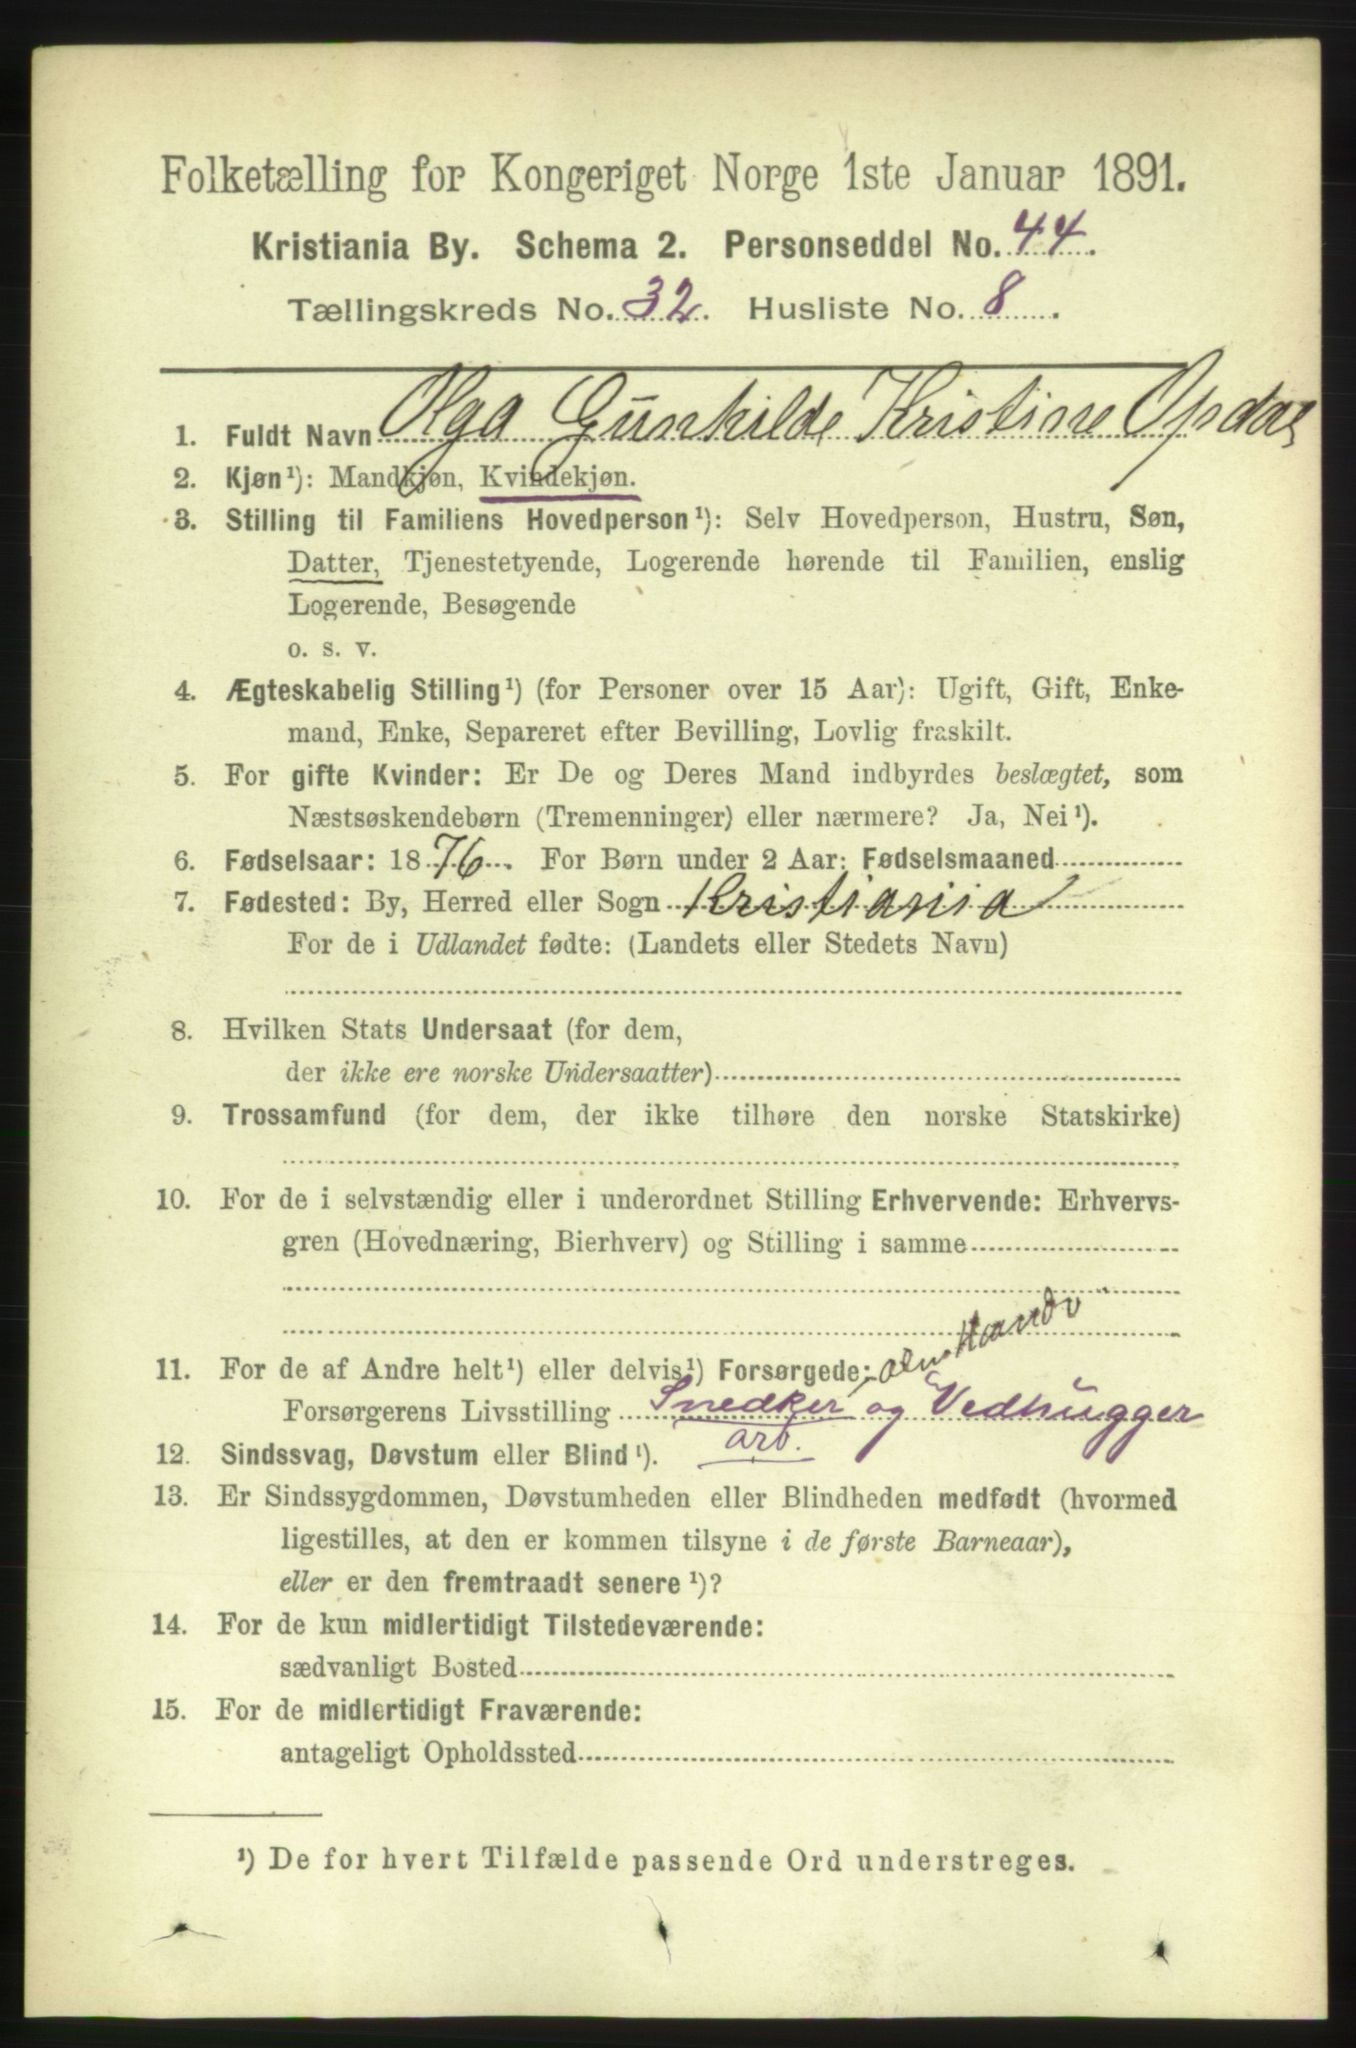 Folketælling for Kongeriget Norge 1ste Januar 1891.
Kristiania By. Schema 2. Personseddel No. 44.
Tællingskreds No. 32. Husliste No. 8.
1. Fuldt Navn Olga Gunhilde Kristine Opdal
2. Kjøn¹): Mandkjøn, Kvindekjøn.
3. Stilling til Familiens Hovedperson¹): Selv Hovedperson, Hustru, Søn,
Datter, Tjenestetyende, Logerende hørende til Familien, enslig
Logerende, Besøgende
o. s. v.
4. Ægteskabelig Stilling¹) (for Personer over 15 Aar): Ugift, Gift, Enke-
mand, Enke, Separeret efter Bevilling, Lovlig fraskilt.
5. For gifte Kvinder: Er De og Deres Mand indbyrdes beslægtet, som
Næstsøskendebørn (Tremenninger) eller nærmere? Ja, Nei¹).
6. Fødselsaar: 1876. For Børn under 2 Aar: Fødselsmaaned
7. Fødested: By, Herred eller Sogn Kristiania
For de i Udlandet fødte: (Landets eller Stedets Navn)
8. Hvilken Stats Undersaat (for dem,
der ikke ere norske Undersaatter)
9. Trossamfund (for dem, der ikke tilhøre den norske Statskirke)
10. For de i selvstændig eller i underordnet Stilling Erhvervende: Erhvervs-
gren (Hovednæring, Bierhverv) og Stilling i samme
Haandv
11. For de af Andre helt¹) eller delvis¹) Forsørgede:
Forsørgerens Livsstilling Snedker og Vedhugger
arb.
12. Sindssvag, Døvstum eller Blind¹).
13. Er Sindssygdommen, Døvstumheden eller Blindheden medfødt (hvormed
ligestilles, at den er kommen tilsyne i de første Barneaar),
eller er den fremtraadt senere¹)?
14. For de kun midlertidigt Tilstedeværende:
sædvanligt Bosted
15. For de midlertidigt Fraværende:
antageligt Opholdssted
¹) De for hvert Tilfælde passende Ord understreges.